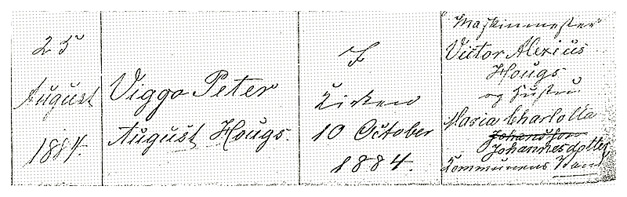 25
August
1884.
Viggo Peter
August Hougs.
I
Kirken
10 October
1884.
Maskinmester
Victor Alexius
Hougs
og Hustru
Maria Charlotta
Johannesdotter
Kommunens